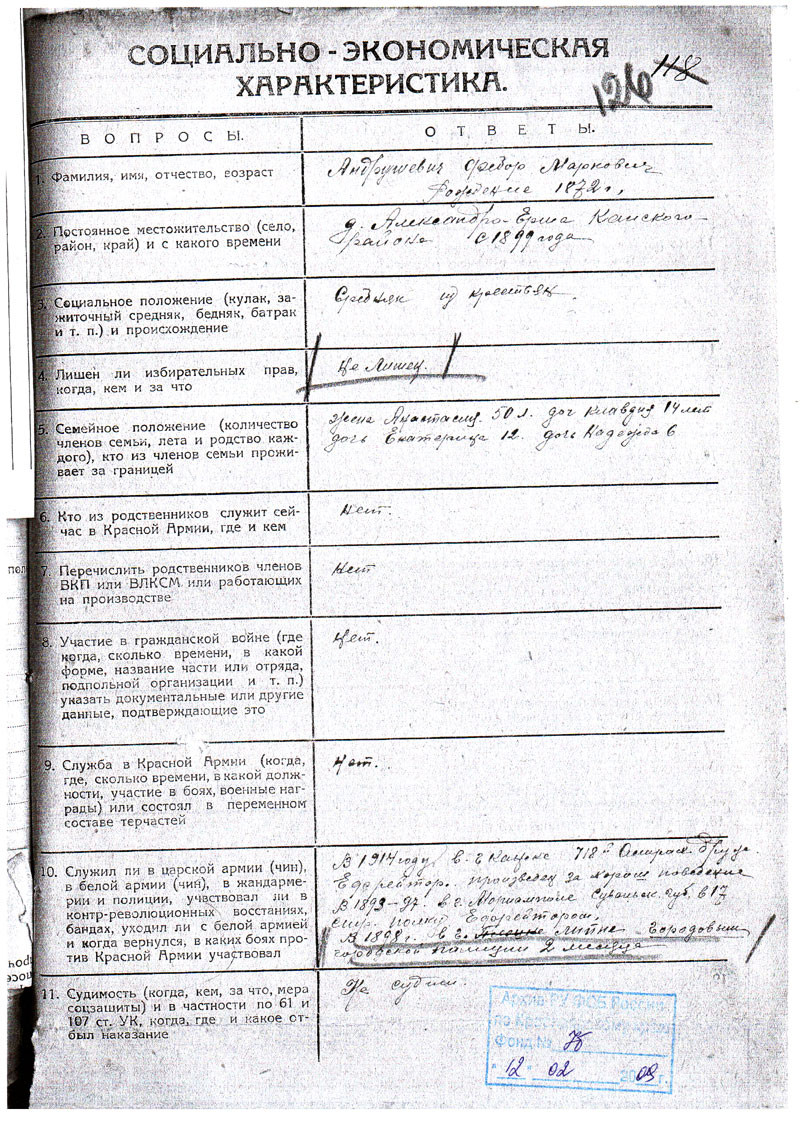 СОЦИАЛЬНО-ЭКОНОМИЧЕСКАЯ
ХАРАКТЕРИСТИКА.
126 118
ВОПРОСЫ.
ОТВЕТЫ.
1. Фамилия, имя, отчество, возраст
Андрушевич Федор Маркович
рождение 1872 г.
2. Постоянное местожительство (село,
район, край) и с какого времени
д. Александро-Ерша Канского
района с 1899 года
3. Социальное положение (кулак, за-
житочный средняк, бедняк, батрак
и т. п.) и происхождение
Средняк из крестьян.
4. Лишен ли избирательных прав,
когда, кем и за что
Не Лишен.
5. Семейное положение (количество
членов семьи, лета и родство каж-
дого), кто из членов семьи прожи-
вает за границей
жена Анастасия. 50 л. доч Клавдия 14 лет
дочь Екатерина 12. дочь Надежда 6
6. Кто из родственников служит сей-
час в Красной Армии, где и кем
Нет.
7. Перечислить родственников членов
ВКП или ВЛКСМ или работающих
на производстве
Нет
8. Участие в гражданской войне (где
когда, сколько времени, в какой
форме, название части или отряда,
подпольной организации и т. п.)
указать документальные или другие
данные, подтверждающие это
Нет.
9. Служба в Красной Армии (когда,
где, сколько времени, в какой долж-
ности, участие в боях, военные наг-
рады) или состоял в переменном
составе терчастей
Нет.
10. Служил ли в царской армии (чин),
в белой армии (чин), в жандарме-
рии и полиции, участвовал ли в
контр-революционных восстаниях,
бандах, уходил ли с белой армией
и когда вернулся, в каких боях про-
тив Красной Армии участвовал
В 1914 году в г Канске 718й друж.
Ефрейтор. произведен за хорош поведение
В 1893-97. в г. Мариамполе Сувальск. губ. в 17
полку Ефрейтором.
В 1898г. в г. Литне Городовым
городской полиции 2 месяца
11. Судимость (когда, кем, за что, мера
соцзащиты) и в частности по 61 и
107 ст. УК, когда, где и какое от-
был наказание
Не судим.
Архив РУ ФСБ России
по Красноярскому краю
Фонд № 7
"12" 02 2009 г.